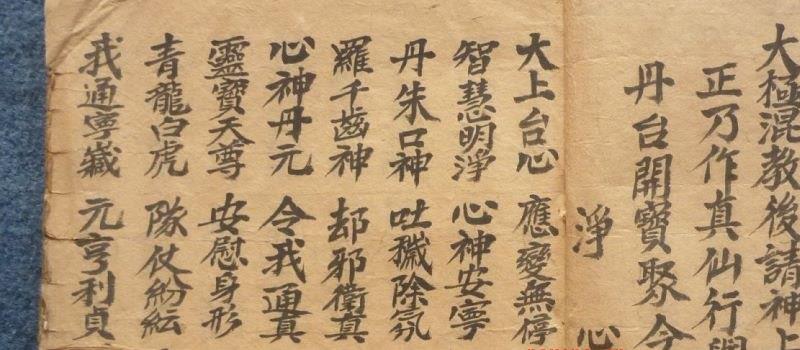 大極混教後請神上
正乃作真仙行
丹台開寶聚今
淨 心
大上台心 應變無停
智慧明淨 心神安寧
丹朱口神 吐穢除氛
羅千齒神 却邪衛真
心神丹元 令我通真
靈寶天尊 安慰身形
青龍白虎 隊仗紛紜
我通寧藏 元亨利貞